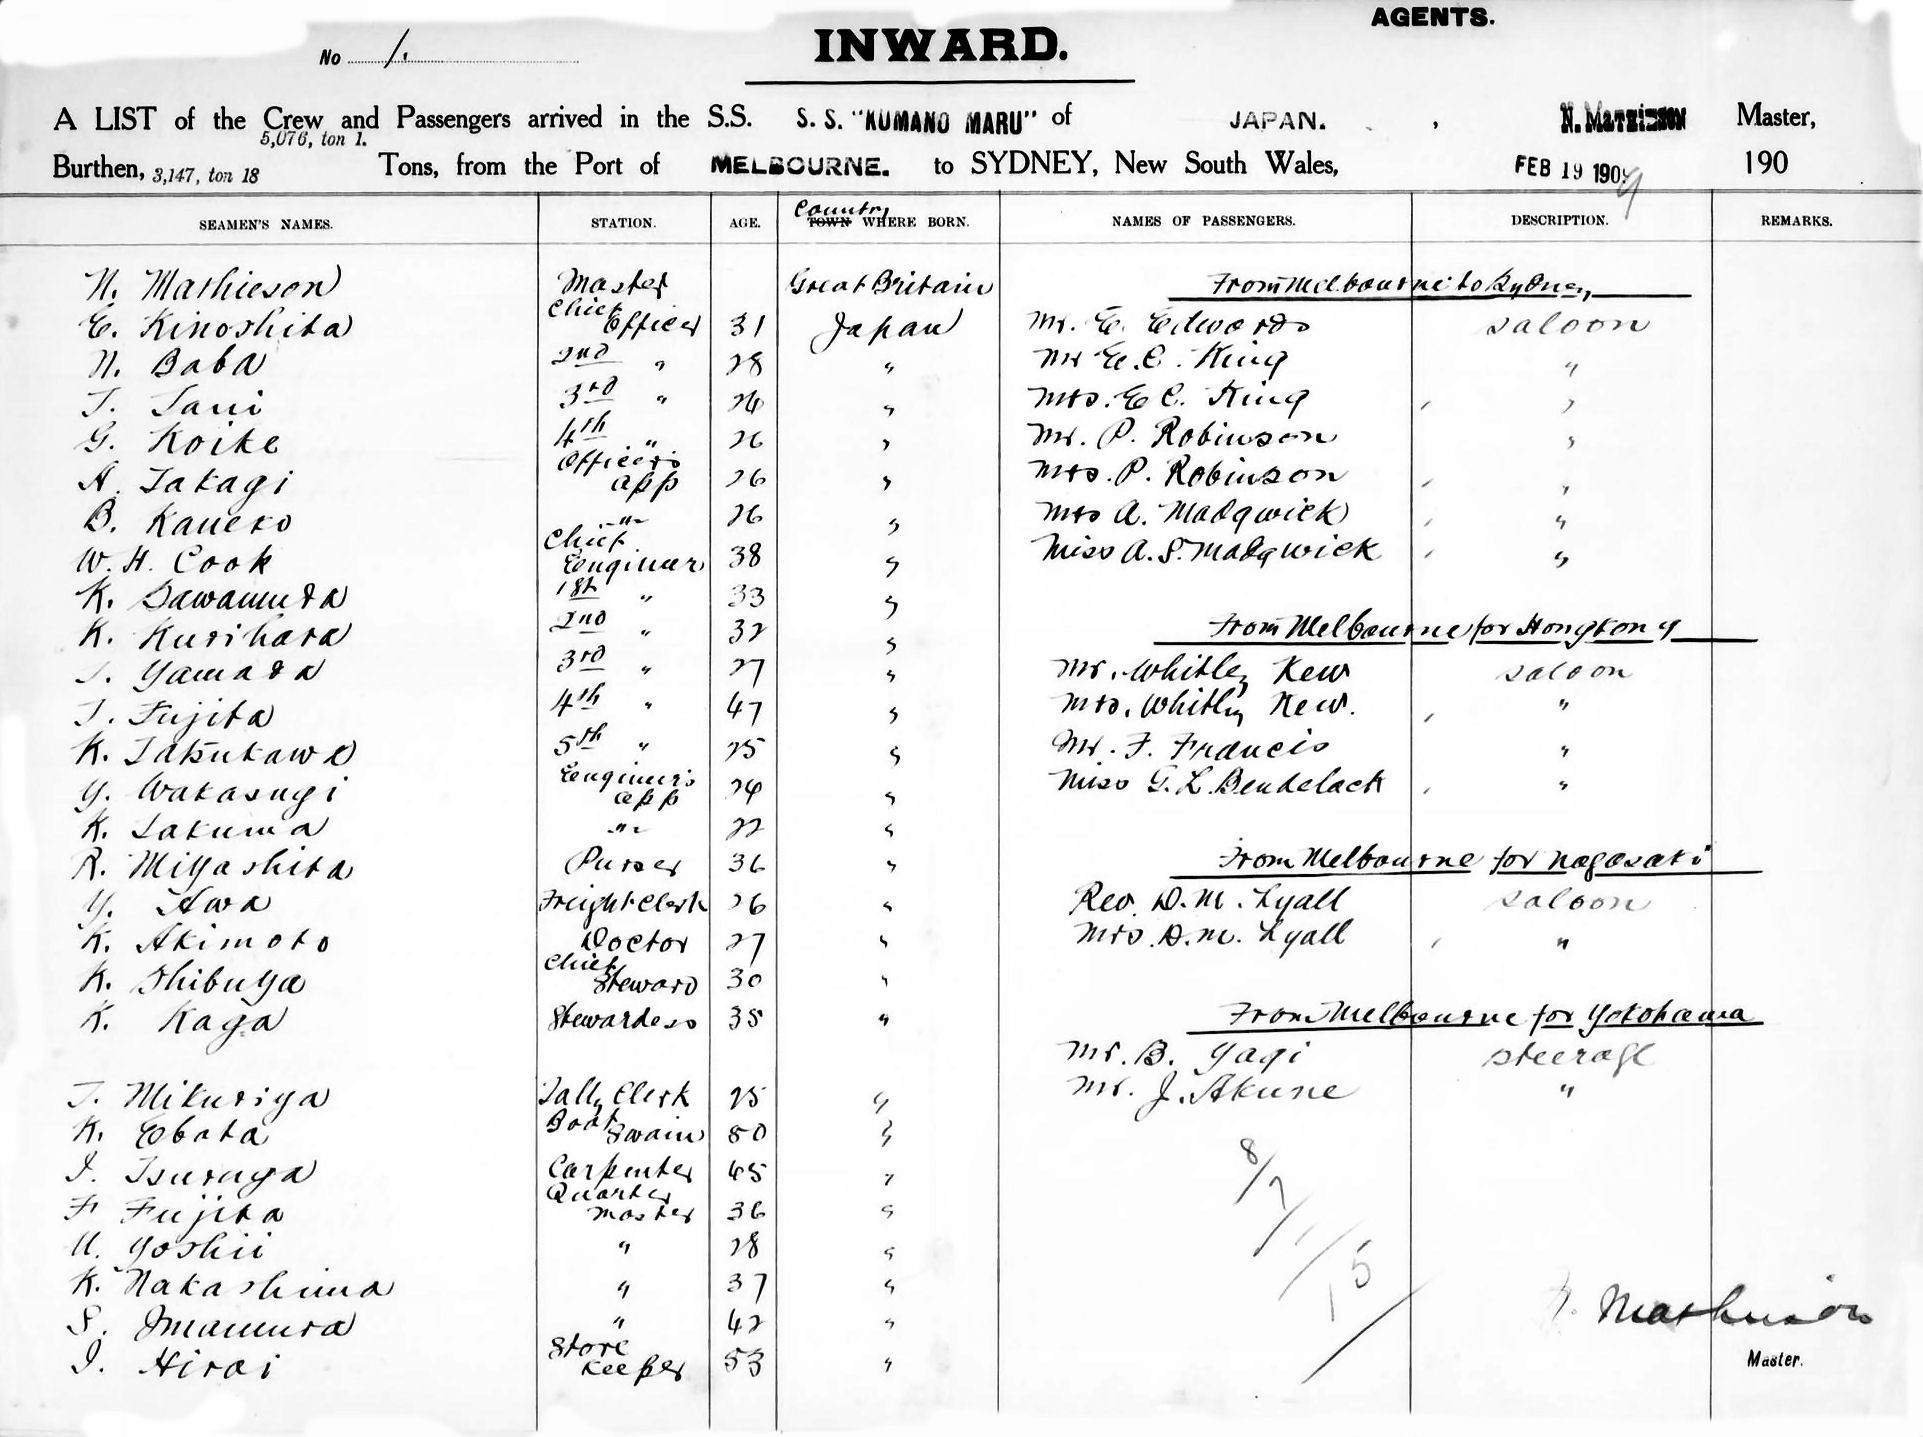 AGENTS.
No 1.
INWARD.
A LIST of the Crew and Passengers arrived in the S.S. S. S. "KUMANO MARU" of JAPAN. , N. MATHIESON Master,
5,076, ton 1.
Burthen, 3,147, ton 18 Tons, from the Port of MELBOURNE. to SYDNEY, New South Wales, FEB 19 1909 190
Country
SEAMEN'S NAMES. STATION. AGE. TOWN WHERE BORN. NAMES OF PASSENGERS. DESCRIPTION. REMARKS.
N. Mathieson Master Great Britain From Melbourne to Sydney
E. Kinoshita Chief Officer 31 Japan Mr. E. Edwards saloon
N. Baba 2nd " 28 " Mr E. C. King "
T. Tani 3rd " 24 " Mrs. E C. King "
G. Koike 4th " 26 " Mr. P. Robinson "
A. Takagi Officer's app 26 " Mrs. P. Robinson "
B. Kaneko " 26 " Mrs A. Madgwick "
W. H. Cook Chief Engineer 38 " Miss A. S. Madgwick "
K. Sawamura 1st " 33 "
K. Kurihara 2nd " 32 " From Melbourne for Hongkong
T. Yamada 3rd " 27 " Mr. Whitley Kew saloon
T. Fujita 4th " 47 " Mrs. Whitley Kew. "
K. Tatsukawa 5th " 25 " Mr. F. Francis "
Y. Wakasugi Engineer's app 24 " Miss G. L. Bendelack "
K. Takuma " 22 "
R. Miyashita Purser 36 " From Melbourne for Nagasaki
Y. Awa Freight Clerk 26 " Rev. D. M. Lyall saloon
K. Akimoto Doctor 27 " Mrs. D. M. Lyall "
K. Shibuya Chief Steward 30 "
K. Kaga Stewardess 35 " From Melbourne for Yokohama
Mr. B. Yagi steerage
T. Mikuriya Tally Clerk 25 " Mr. J. Akune "
K. Obata Boat Swain 50 "
I. Tsuruga Carpenter 45 "
F Fujita Quarter master 36 "
U. Yoshii " 28 "
K. Nakashima " 37 "
S. Imamura " 42 "
I. Hirai Store Keeper 53 "
8/7
15
N. Mathieson
Master.